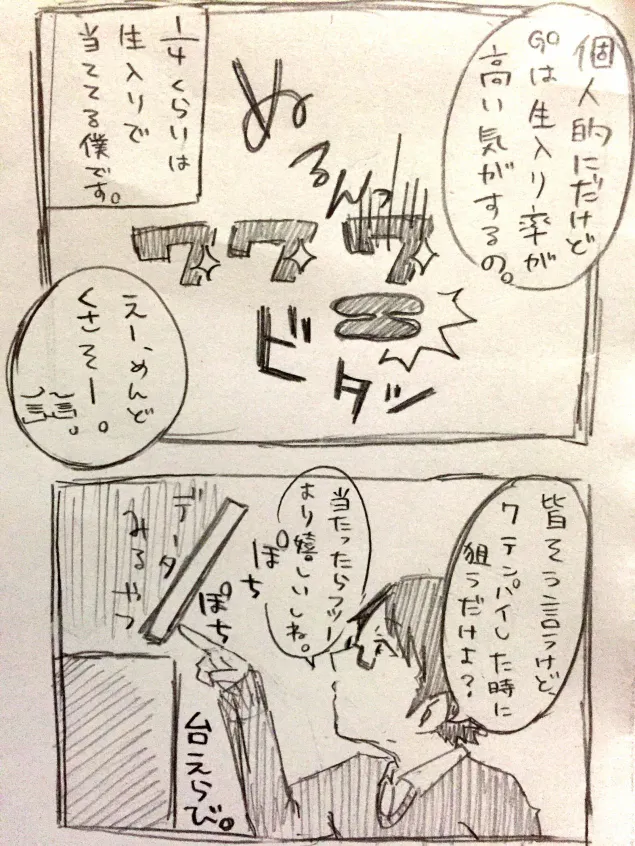 個人的にだけど
GOは生入り率が
高い気がするの。
ぬるんっ
1/4くらいは
生入りで
当ててる僕です。
7 7 7
ビタッ
えー、めんど
くさそー。
皆そう言うけど、
7テンパイした時に
狙うだけよ?
当たったらフツー
より嬉しいしね。
ぽち
ぽち
データ
みるやつ
台えらび。